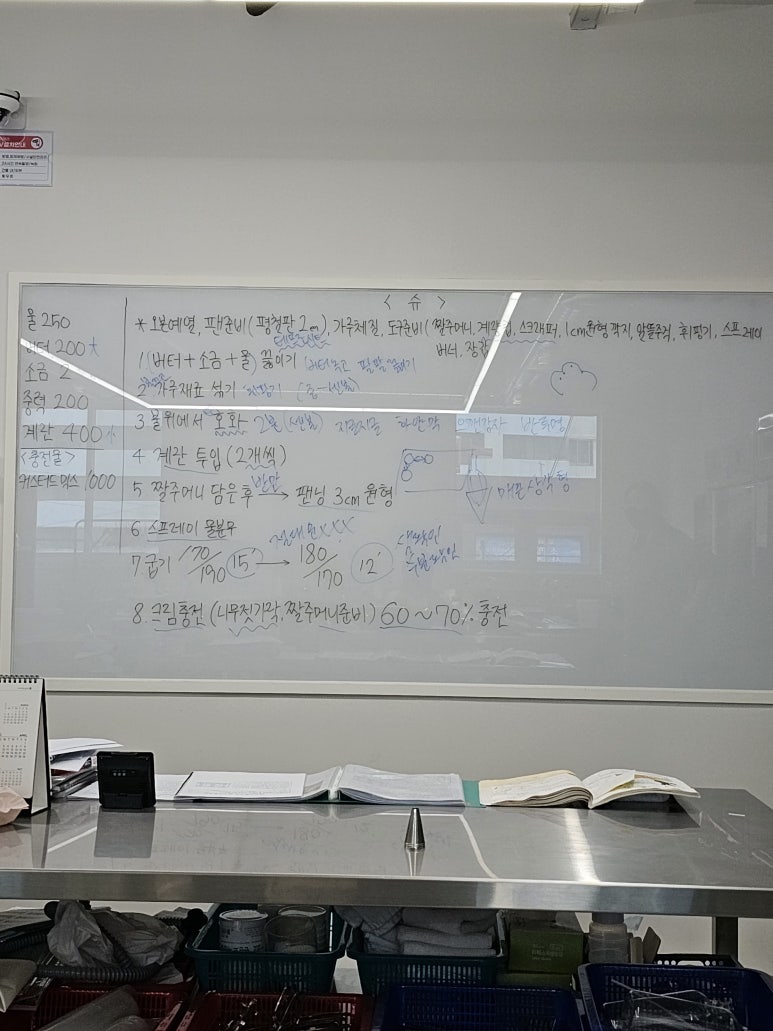 < 슈 >
물 250
버터 200
소금 2
중력 200
계란 400
<충전물>
커스터드믹스 1000
* 오븐예열, 팬준비(평철판 2m), 가루체질, 도구준비(짤주머니, 계량컵, 스크래퍼, 1cm원형깍지, 알뜰주걱, 휘핑기, 스프레이
버너, 장갑
1 (버터+소금+물) 끓이기 (버터녹고 팔팔끓이기
2 가루재료 섞기 (중-센불)
3 불위에서 호화 2분(센불) 지글지글 하얀막 으깬감자 반투명
4 계란 투입 (2개씩)
5 짤주머니 담은후 반만 → 팬닝 3cm 원형
6 스프레이 물분무
절대문XXX
7.굽기 170/190 15' → 180/170 12'
8. 크림충전 (나무젓가락, 짤주머니준비) 60~70% 충전